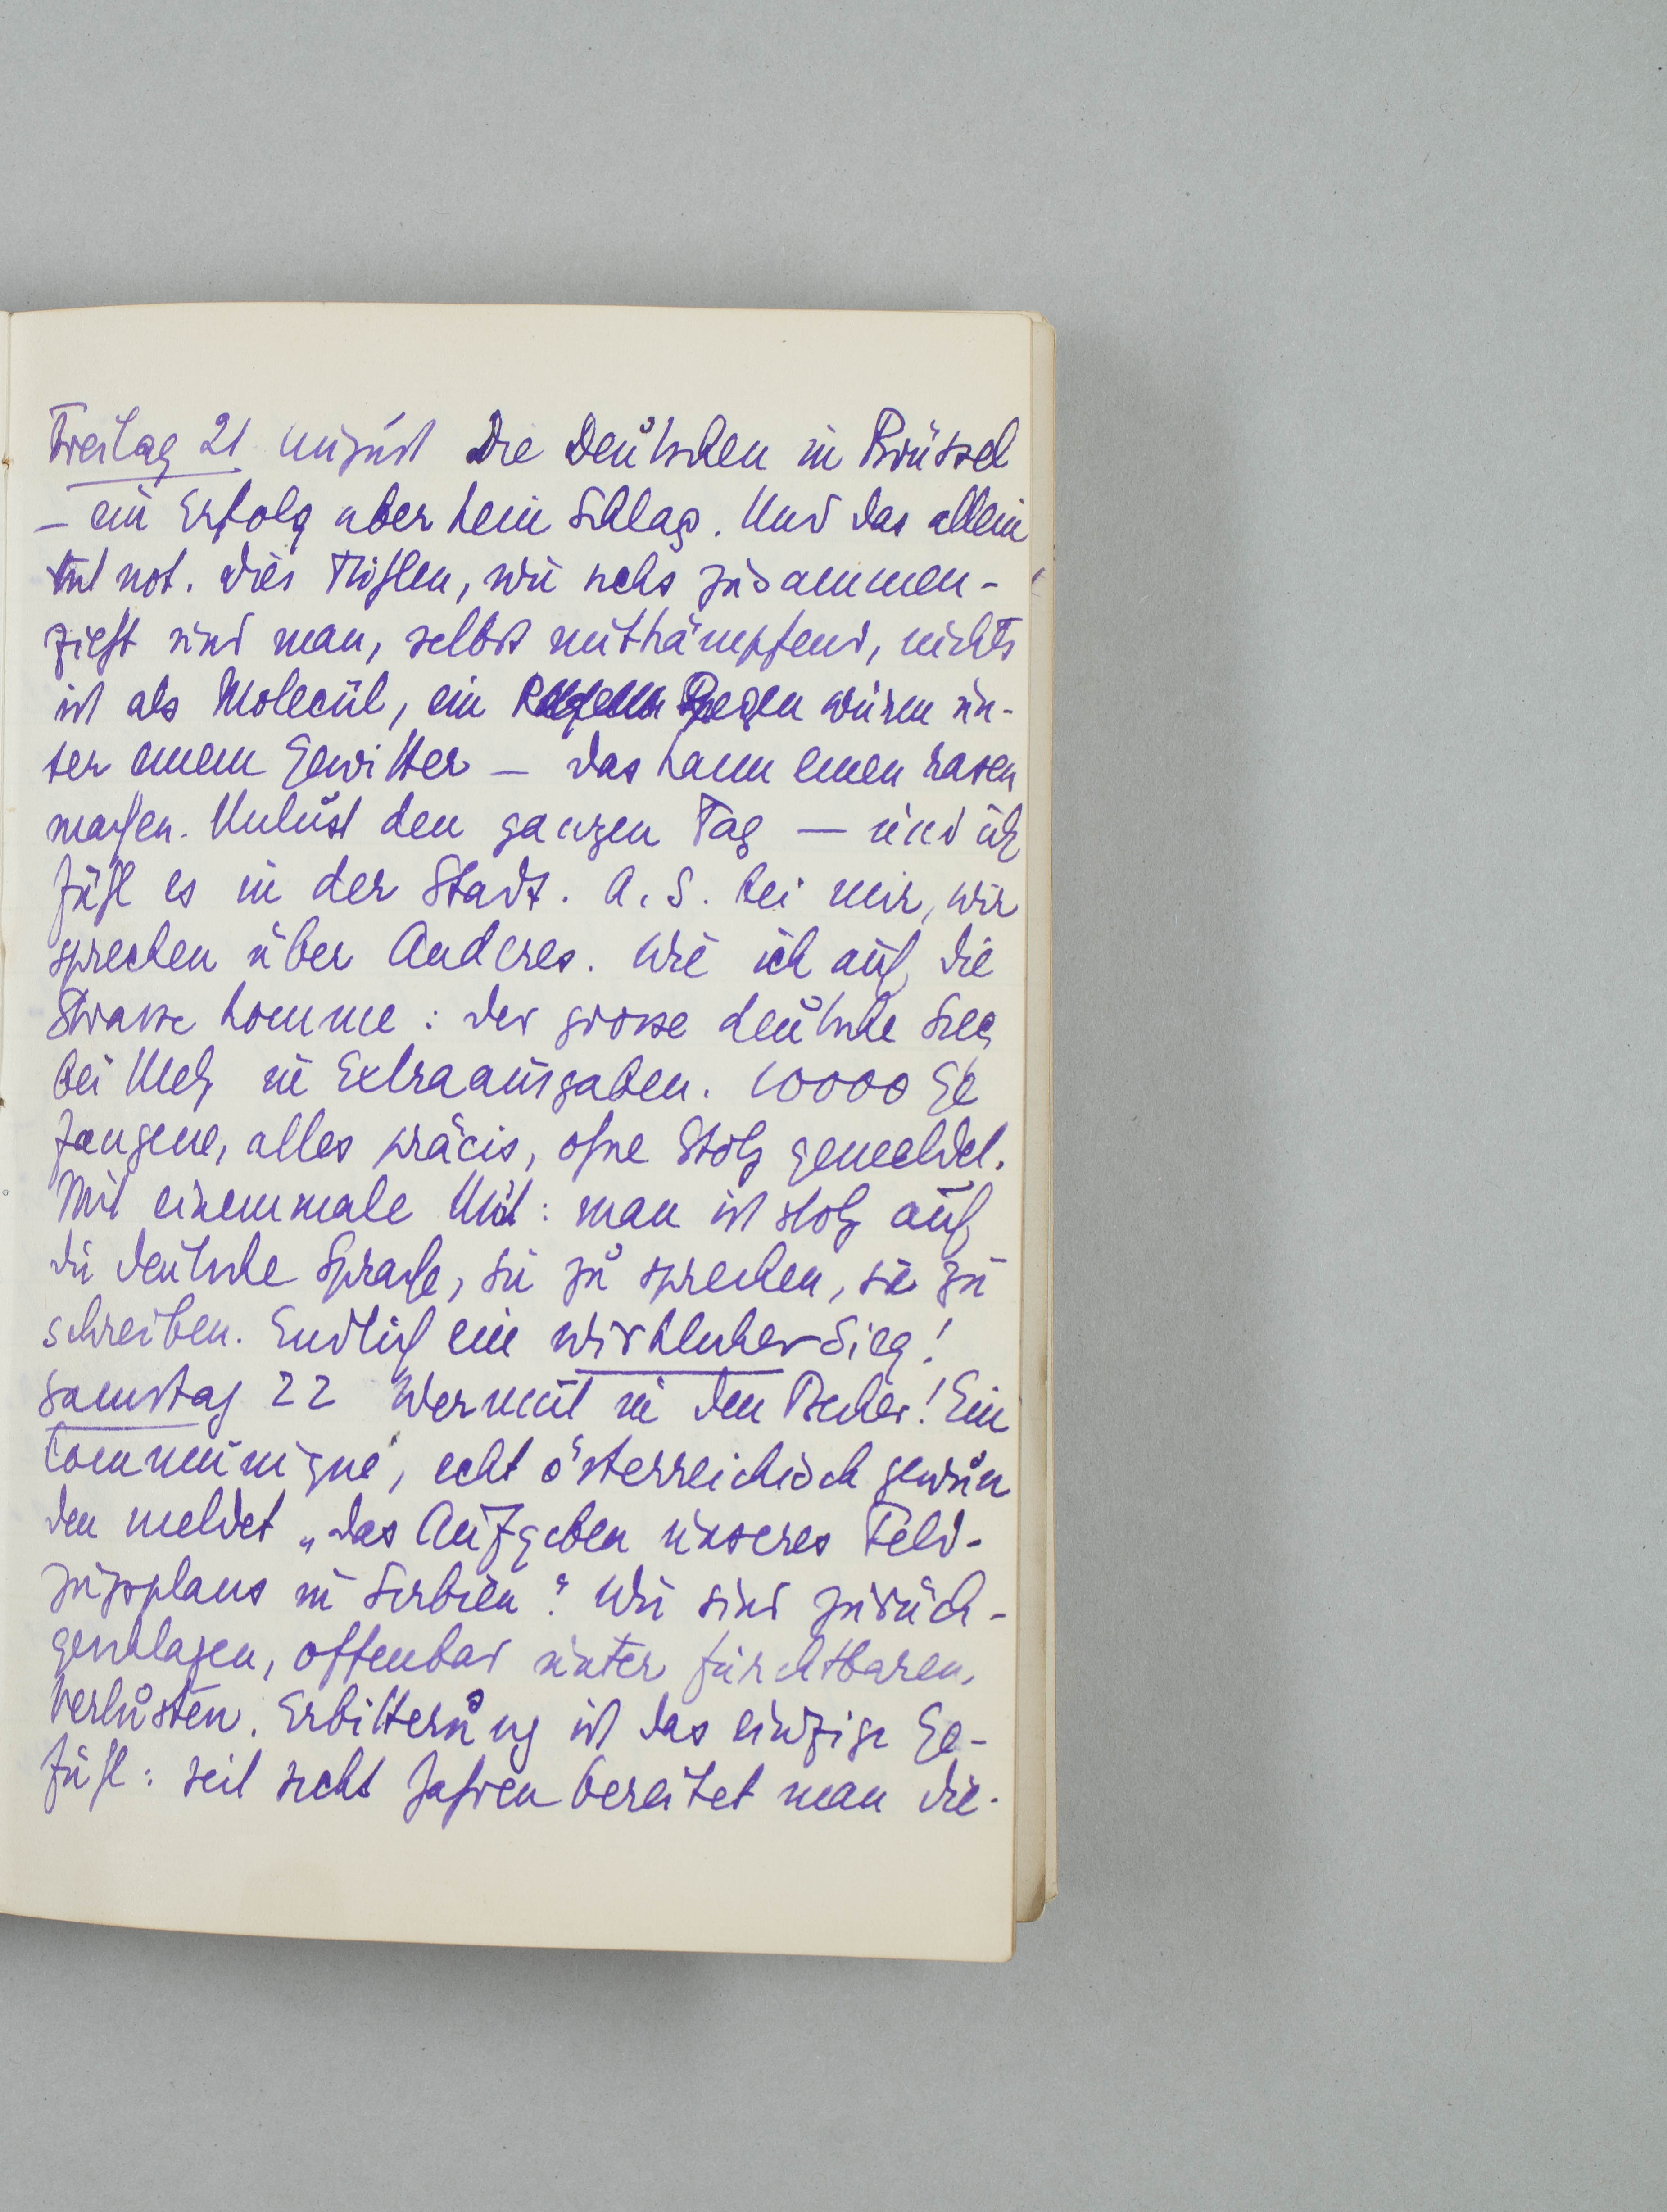 Freitag 21 August Die Deutschen in Brüssel
– ein Erfolg aber kein Schlag. Und das allein
tut not. Dies Fühlen, wie sichs zusammen-
zieht und man, selbst mitkämpfend, nichts
ist als Molecül, ein Regenwurm un-
ter einem Gewitter – das kann einen rasen
machen. Unlust den ganzen Tag – und ich
fühl es in der Stadt. A. S. bei mir, wir
sprechen über Anderes. Wie ich auf die
Strasse komme: der grosse deutsche Sieg
bei Metz in Extraausgaben. 10000 Ge
fangene, alles präcis, ohne Stolz gemeldet.
Mit einemmale Mut: man ist stolz auf
die deutsche Sprache, sie zu sprechen, sie zu
schreiben. Endlich ein wirklicher Sieg!
Samstag 22 Wermut in den Becher! Ein
Communiqué, echt österreichisch gewun
den meldet „das Aufgeben unseres Feld-
zugsplans in Serbien“. Wir sind zurück-
geschlagen, offenbar unter furchtbaren
Verlusten. Erbitterung ist das einzige Ge-
fühl: seit sechs Jahren bereitet man die-